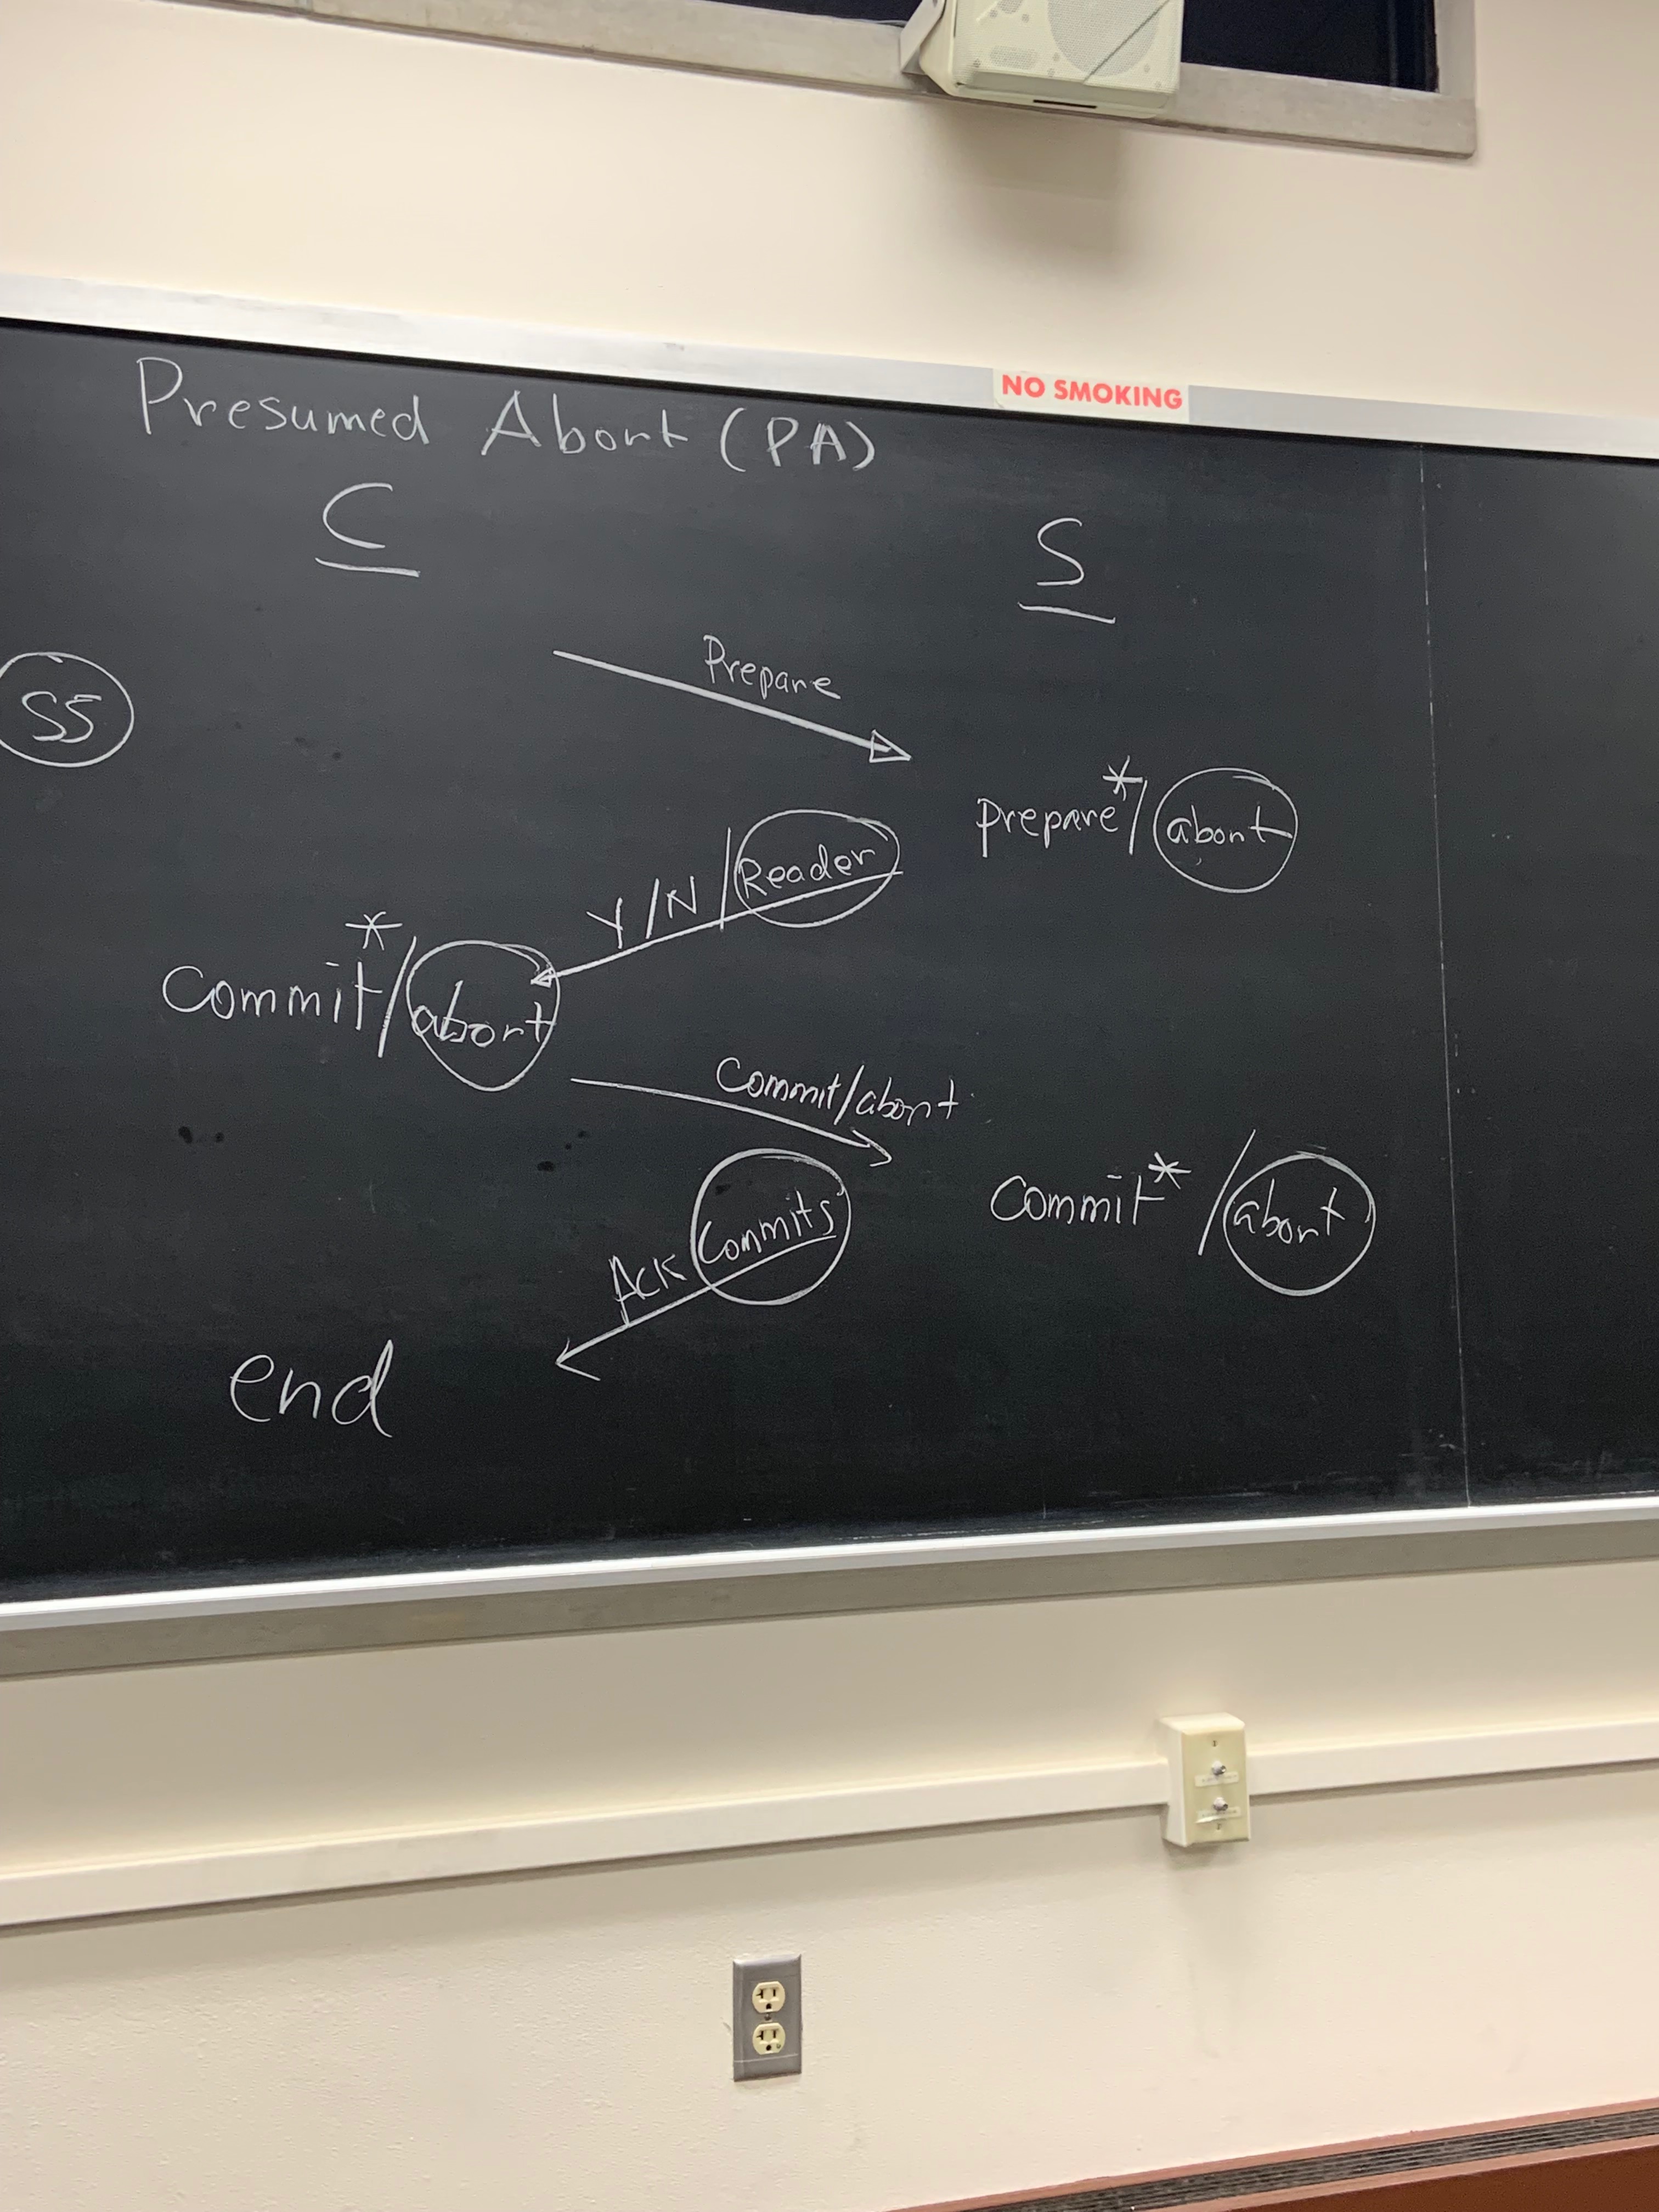 NO SMOKING
Presumed Abort (PA)
C
S
Prepare
S5
prepare*/abort
Y/N/Reader
commit*/abort
Commit/abort
Commit*/abort
Ack Commits
end